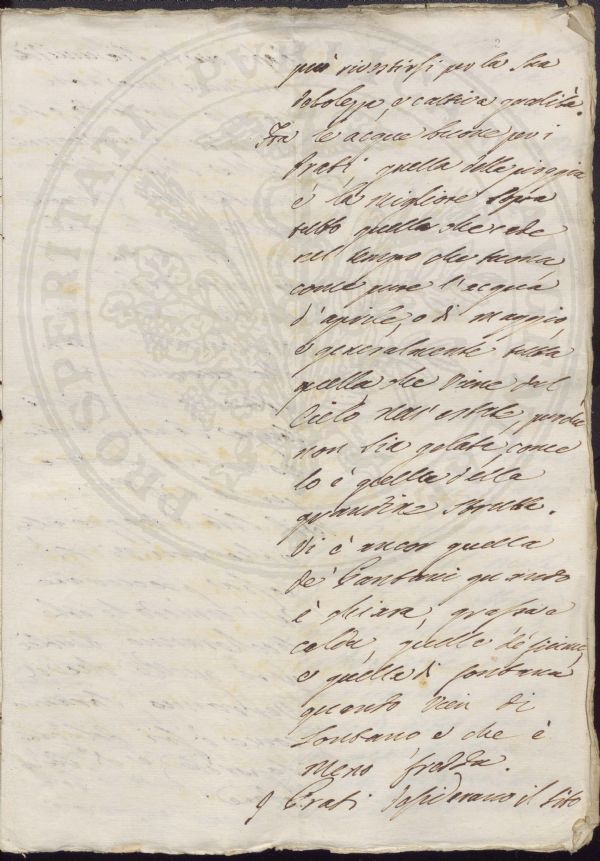 può rivestirsi per la sua
debolezza, e cattiva qualità.
Fra le acque buone per i
Prati, quella della pioggia
è la migliore sopra
tutto quella che cade
nel tempo che tuona
come pure l'acqua
d'aprile, o di maggio,
e generalmente tutta
quella che viene dal
Cielo nell'estate, purchè
non sia gelata, come
lo è quella della
grandine strutta.
Vi è ancor quella
de' Pantani quando
è chiara, grassa e
calda, quella de' fiumi,
e quella di fontana
quanto vien di
lontano e che è
meno fredda.
I Prati desiderano il sito
PROSPERITATI PUBLICAE AUGENDAE